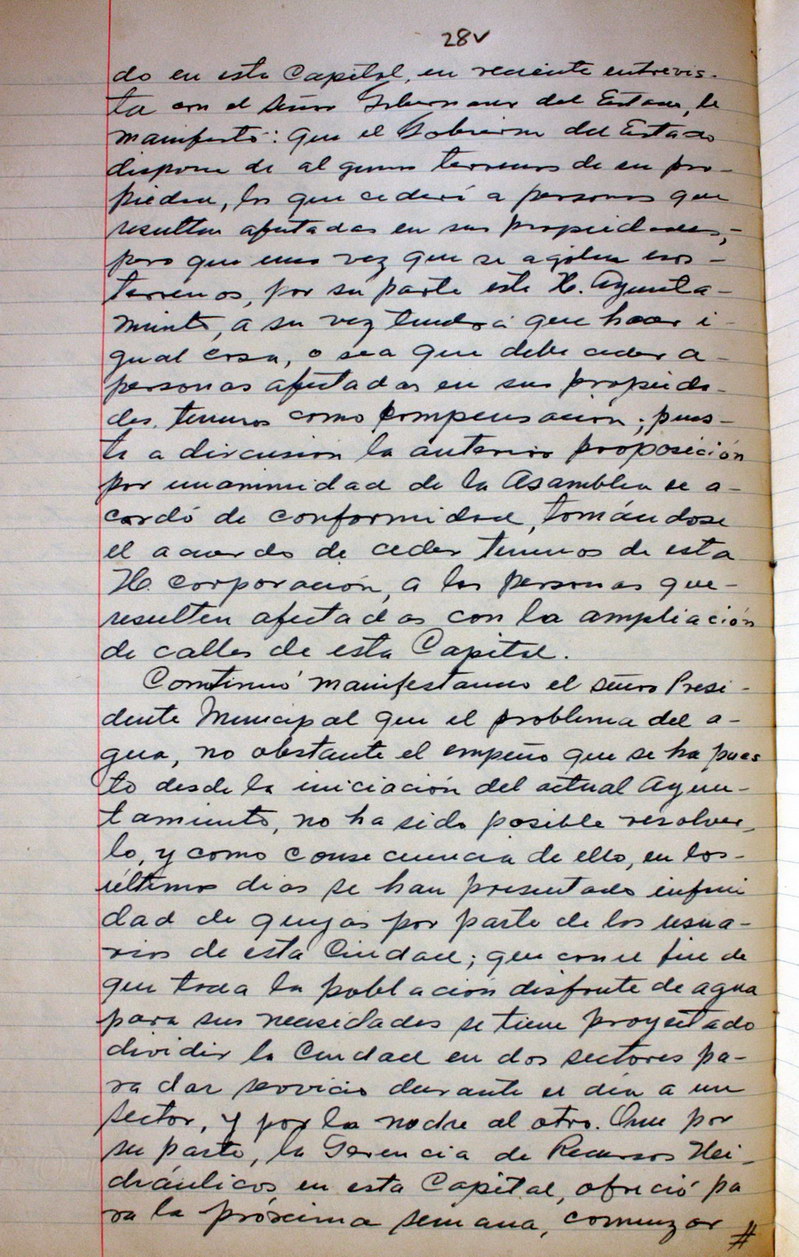 28v
do en esta Capital, en reciente entrevis-
ta con el señor Gobernador del Estado, le
manifestó: que el Gobierno del Estado
dispone de algunos terrenos de su pro-
piedad, los que cederá a personas que
resulten afectadas en sus propiedades,-
pero que una vez que se agoten esos-
terrenos, por su parte este H. Ayunta-
miento, a su vez tendrá que hacer i-
gual cosa, o sea que debe ceder a-
personas afectadas en sus propieda-
des, terrenos como compensación; pues-
ta a discusión la anterior proposición
por unanimidad de la Asamblea se a-
cordó de conformidad, tomándose
el acuerdo de ceder terrenos de esta
H. corporación, a las personas que-
resulten afectadas con la ampliación
de calles de esta Capital.
Continuó manifestando el señor Presi-
dente Municipal que el problema del a-
gua, no obstante el empeño que se ha pues
to desde la iniciación del actual Ayun-
tamiento, no ha sido posible resolver-
lo, y como consecuencia de ello, en los-
últimos dias se han presentado infini
dad de quejas por parte de los usua-
rios de esta Ciudad; que con el fin de
que toda la población disfrute de agua
para sus necesidades se tiene proyectado
dividir la Ciudad en dos sectores pa-
ra dar servicio durante el día a un
sector, y por la noche al otro. Que por
su parte, la Gerencia de Recursos Hi-
dráulicos en esta Capital, ofreció pa
ra la próxima semana, comenzar #